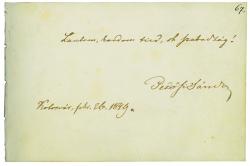 67.
Lantom, kardom tiéd, oh szabadság!
Petőfi Sándor
Kolosvár, febr. 26. 1849.